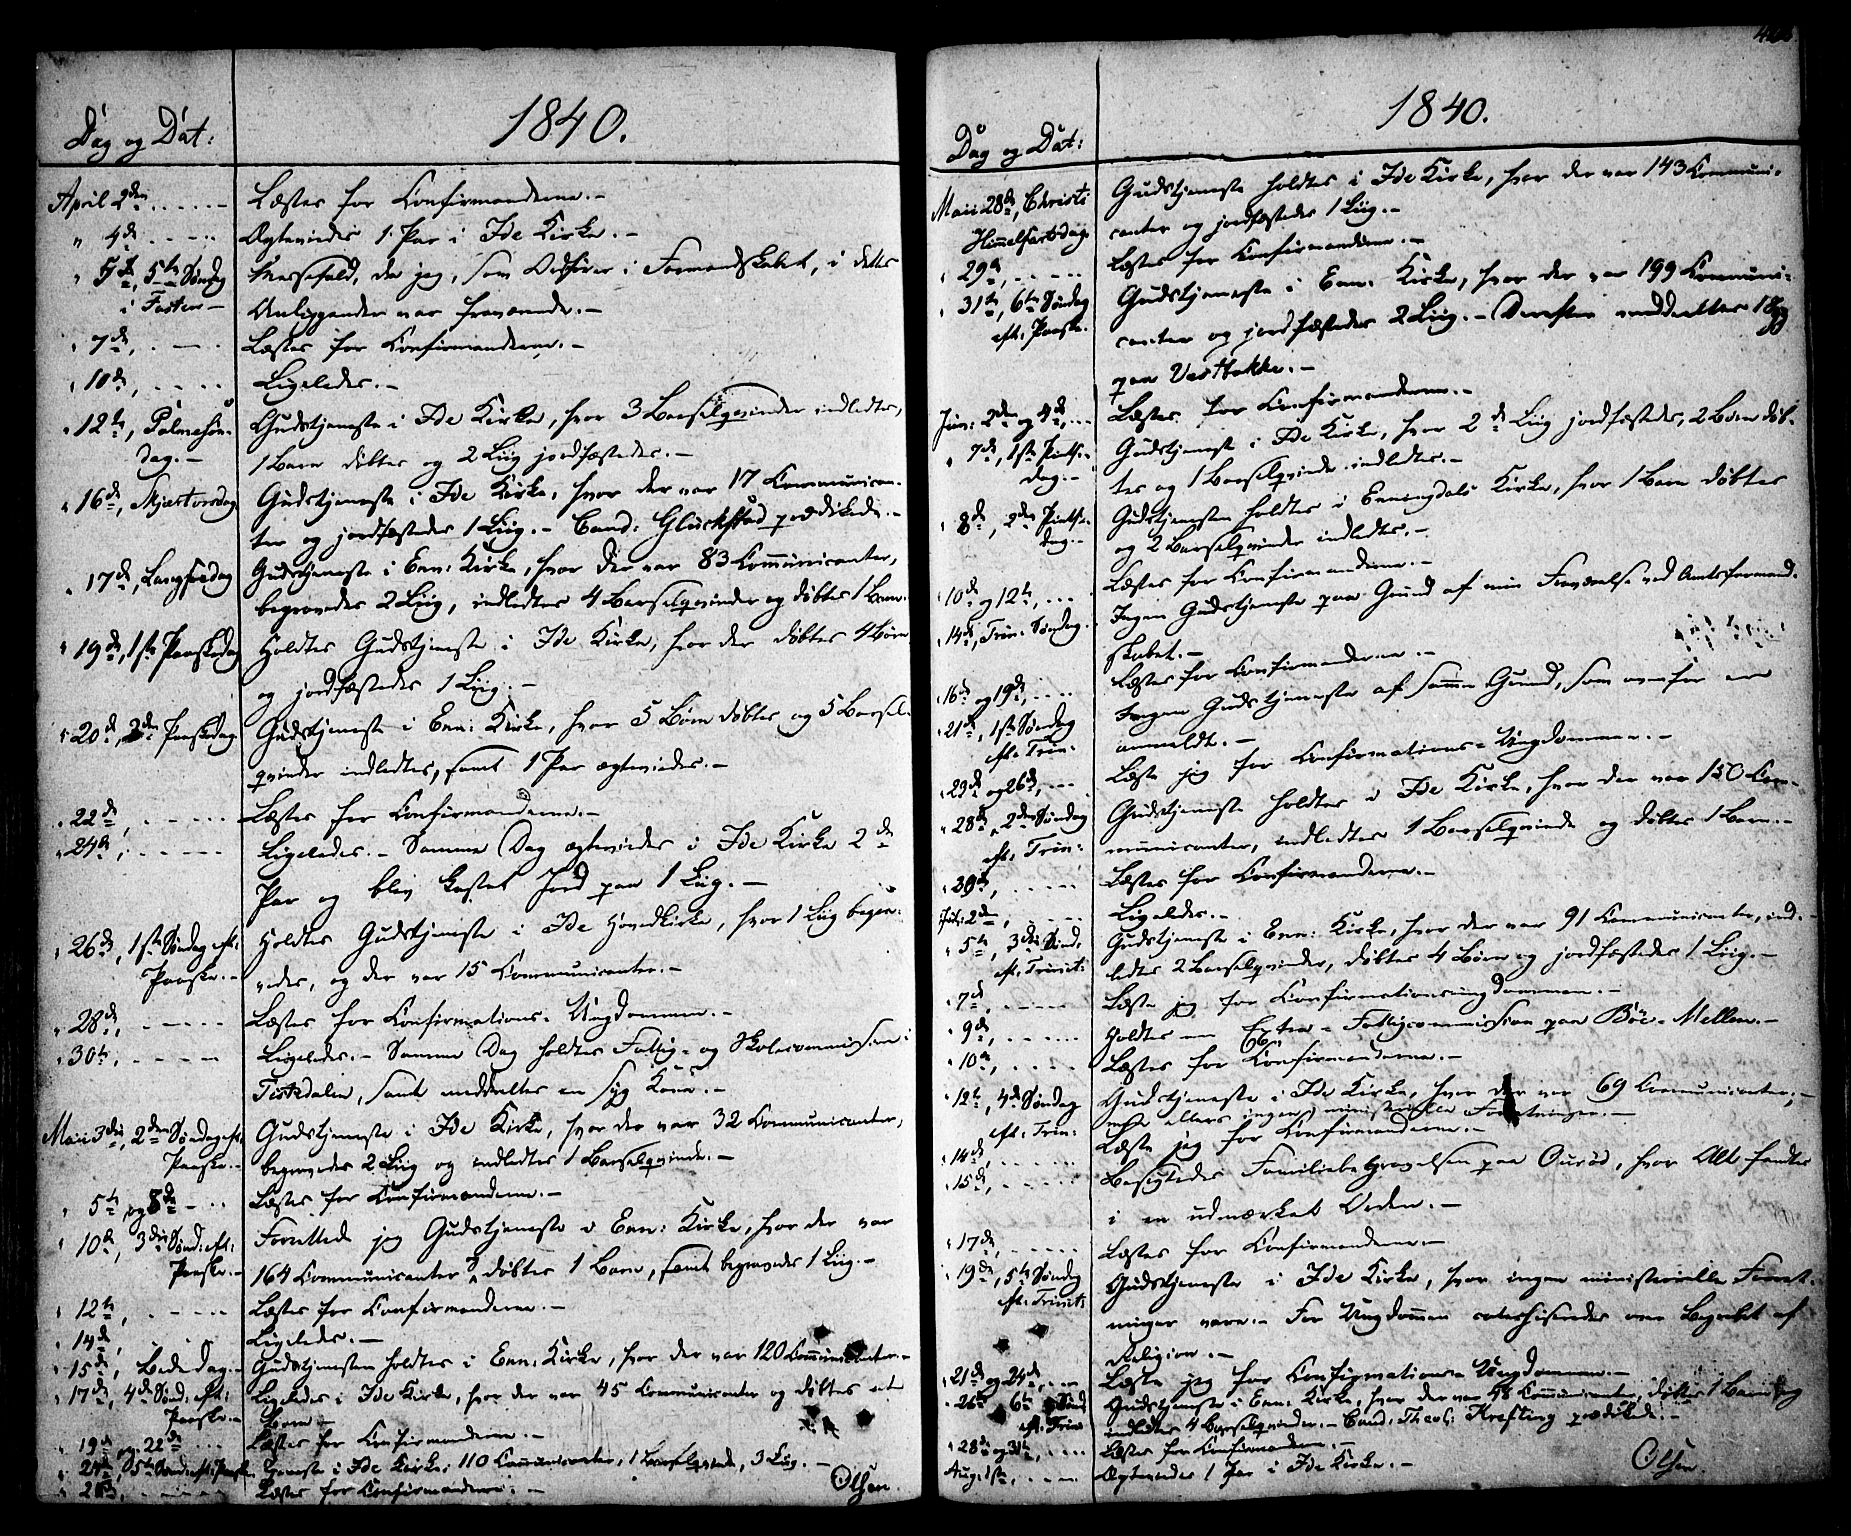 1840.
Dag og Dat:
April 2den . . . . . Læstes for Confirmanderne. -
" 4de . . . . . Ægteviedes 1 Par i Ide Kirke. -
" 5te, 5te Søndag Messefald, da jeg, som Ordfører i Formandskabet, i dette
i Fasten - Anliggender var fraværende. -
" 7de, . . . Læstes for Confirmanderne. -
" 10de, . . . . Ligeledes. -
" 12te, Palmesøn- Gudstjeneste i Ide Kirke, hvor 3 Barselqvinder indledtes,
dag. - 1 Barn døbtes og 2 Liig jordfæstedes. -
" 16de, Skjærtorsdag Gudstjeneste i Ide Kirke, hvor der var 17 Communican-
ter og jordfæstedes 1 Liig. - Cand: Glückstad prædikede. -
" 17de, Langfredag Gudstjeneste i Enn: Kirke, hvor der var 83 Communicanter,
begravedes 2 Liig, indledtes 4 Barselqvinder og døbtes 1 Barn.
" 19de, 1ste Paaskedag Holdtes Gudstjeneste i Ide Kirke, hvor der døbtes 4 Børn
og jordfæstedes 1 Liig. -
" 20de, 2de Paaskedag Gudstjeneste i Enn: Kirke, hvor 5 Børn døbtes og 5 Barsel-
qvinder indledtes, samt 1 Par ægteviedes. -
" 22de, . . . . . Læstes for Confirmanderne. -
" 24de, . . . . . Ligeledes. - Samme Dag ægteviedes i Ide Kirke 2de
Par og blev kastet Jord paa 1 Liig. -
" 26de, 1ste Søndag eft: Holdtes Gudstjeneste i Ide Hovedkirke, hvor 1 Liig begra-
Paaske. - vedes, og der var 15 Communicanter. -
" 28de, . . . . . Læstes for Confirmations-Ungdommen. -
" 30te, . . . . Ligeledes. - Samme Dag holdtes Fattig- og Skolecommission i
Tistedalen, samt meddeeltes en syg Kone. -
Maii 3die, 2den Søndag eft: Gudstjeneste i Ide Kirke, hvor der var 32 Communicanter,
Paaske. - begravedes 2 Liig og indledtes 1 Barselqvinde. -
" 5te og 8de - . . Læstes for Confirmanderne. -
" 10de, 3die Sønd: eft: Forrettede jeg Gudstjeneste i Enn: Kirke, hvor der var
Paaske. - 164 Communicanter & døbtes 1 Barn, samt begravedes 1 Liig. -
" 12te, . . . . Læstes for Confirmanderne. -
" 14de, . . . Ligeledes. -
" 15de, Bededag. - Gudstjenesten holdtes i Enn: Kirke, hvor der var 120 Communicanter. -
" 17de, 4de Sønd: eft: Ligeledes i Ide Kirke, hvor der var 45 Communicanter og døbtes et
Paaske. - Barn. -
" 19de og 22de . . . Læstes for Confirmanderne. -
" 24de, 5te Sønd: eft: Paaske. Tjeneste i Ide Kirke, 110 Communicanter, 1 Barselqvinde, 3 Liig. -
" 26de, . . . . . Læstes for Confirmanderne. - Olsen.
1840.
Dag og Dat:
Maii 28de, Christi Gudstjeneste holdtes i Ide Kirke, hvor der var 143 Communi-
Himmelfartsdag. canter og jordfæstedes 1 Liig. -
" 29de, . . . . . Læstes for Confirmanderne. -
" 31te, 6te Søndag Gudstjeneste i Enn: Kirke, hvor der var 199 Communi-
eft: Paaske. canter og jordfæstedes 2 Liig. - Derefter meddeeltes 1 Syg
paa Vestbakke. -
Juni: 2den og 4de, . . . Læstes for Confirmanderne. -
" 7de, 1ste Pintse- Gudstjeneste i Ide Kirke, hvor 2de Liig jordfæstedes, 2 Børn døb-
dag. - tes og 1 Barselqvinde indledtes. -
" 8de, 2den Pintse- Gudstjenesten holdtes i Enningdals Kirke, hvor 1 Barn døbtes
dag. - og 2 Barselqvinder indledtes. -
" 10de og 12te, . . . Læstes for Confirmanderne. -
" 14de, Trin: Søndag. Ingen Gudstjeneste paa Grund af min Fraværelse ved Amtsformand-
skabet. -
" 16de og 19de, . . . Læstes for Confirmanderne. -
" 21de, 1ste Søndag Ingen Gudstjeneste af samme Grund, som ovenfor er
eft: Trin: anmeldt. -
" 23de og 26de, . . . Læste jeg for Confirmations-Ungdommen. -
" 28de, 2den Søndag Gudstjeneste holdtes i Ide Kirke, hvor der var 150 Com-
eft: Trin: municanter, indledtes 1 Barselqvinde og døbtes 1 Barn. -
" 30de, . . . . . Læstes for Confirmanderne. -
Juli: 2den, . . . . Ligeledes. -
" 5te, 3die Sønd: Gudstjeneste i Enn: Kirke, hvor der var 91 Communicanter, ind-
eft: Trinit: ledtes 2 Barselqvinder, døbtes 4 Børn og jordfæstedes 1 Liig. -
" 7de, . . . . Læste jeg for Confirmationsungdommen. -
" 9de, . . . . . Holdtes Extra-Fattigcommission paa Böe-Mellem. -
" 10de, . . . . Læstes for Confirmanderne. -
" 12te, 4de Søndag Gudstjeneste i Ide Kirke, hvor der var 69 Communicanter,
eft: Trin: men ellers ingen ministerielle Forretninger. -
" 14de, . . . . . Læste jeg for Confirmanderne. -
" 15de, . . . . . Besigtedes Familiebegravelsen paa Ourød, hvor Alt fandtes
i en udmærket Orden. -
" 17de, . . . . . Læstes for Confirmanderne. -
" 19de, 5te Søndag Gudstjeneste i Ide Kirke, hvor ingen ministerielle Forret-
eft: Trinit: ninger vare. - For Ungdommen catechiseredes over Begrebet af
Religion. -
" 21de og 24de, . . . Læste jeg for Confirmations-Ungdommen. -
" 26de 6te Sønd: Gudstjeneste i Enn: Kirke, hvor der var 48 Communicanter, døbtes 1 Barn og
eft: Trin: indledtes 4 Barselqvinder. - Cand: Theol: Krefting prædikede. -
" 28de og 31te, . . . . Læstes for Confirmanderne. -
Aug: 1ste, . . . . Ægteviedes 1 Par i Ide Kirke. - Olsen.